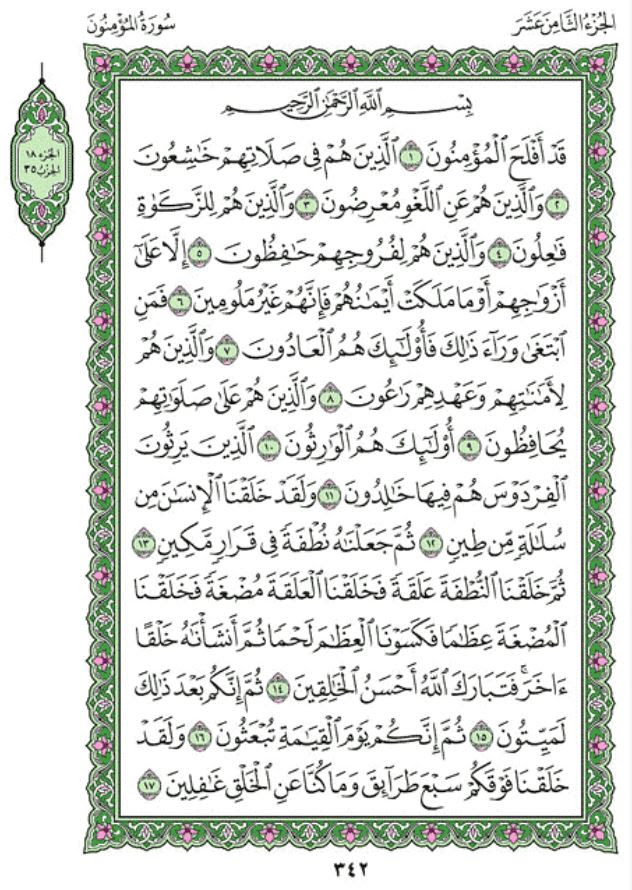 الجُزْءُ الثَّامِنَ عَشَرَ
سُورَةُ المُؤْمِنُونَ
الجزء ١٨
الحزب ٣٥
بِسْمِ اللَّهِ الرَّحْمَٰنِ الرَّحِيمِ
قَدْ أَفْلَحَ الْمُؤْمِنُونَ ١ الَّذِينَ هُمْ فِي صَلَاتِهِمْ خَاشِعُونَ
٢ وَالَّذِينَ هُمْ عَنِ اللَّغْوِ مُعْرِضُونَ ٣ وَالَّذِينَ هُمْ لِلزَّكَوٰةِ
فَاعِلُونَ ٤ وَالَّذِينَ هُمْ لِفُرُوجِهِمْ حَافِظُونَ ٥ إِلَّا عَلَىٰ
أَزْوَاجِهِمْ أَوْ مَا مَلَكَتْ أَيْمَانُهُمْ فَإِنَّهُمْ غَيْرُ مَلُومِينَ ٦ فَمَنِ
ابْتَغَىٰ وَرَاءَ ذَٰلِكَ فَأُولَٰئِكَ هُمُ الْعَادُونَ ٧ وَالَّذِينَ هُمْ
لِأَمَانَاتِهِمْ وَعَهْدِهِمْ رَاعُونَ ٨ وَالَّذِينَ هُمْ عَلَىٰ صَلَوَاتِهِمْ
يُحَافِظُونَ ٩ أُولَٰئِكَ هُمُ الْوَارِثُونَ ١٠ الَّذِينَ يَرِثُونَ
الْفِرْدَوْسَ هُمْ فِيهَا خَالِدُونَ ١١ وَلَقَدْ خَلَقْنَا الْإِنسَانَ مِن
سُلَالَةٍ مِّن طِينٍ ١٢ ثُمَّ جَعَلْنَاهُ نُطْفَةً فِي قَرَارٍ مَّكِينٍ ١٣
ثُمَّ خَلَقْنَا النُّطْفَةَ عَلَقَةً فَخَلَقْنَا الْعَلَقَةَ مُضْغَةً فَخَلَقْنَا
الْمُضْغَةَ عِظَامًا فَكَسَوْنَا الْعِظَامَ لَحْمًا ثُمَّ أَنشَأْنَاهُ خَلْقًا
ءَاخَرَ ۚ فَتَبَارَكَ اللَّهُ أَحْسَنُ الْخَالِقِينَ ١٤ ثُمَّ إِنَّكُم بَعْدَ ذَٰلِكَ
لَمَيِّتُونَ ١٥ ثُمَّ إِنَّكُمْ يَوْمَ الْقِيَامَةِ تُبْعَثُونَ ١٦ وَلَقَدْ
خَلَقْنَا فَوْقَكُمْ سَبْعَ طَرَائِقَ وَمَا كُنَّا عَنِ الْخَلْقِ غَافِلِينَ ١٧
٣٤٢